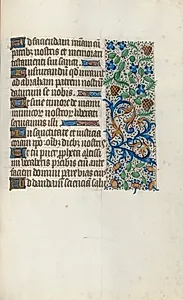 Ad faciendam miam cū
patribus nostris et memorari
testamenti sui sancti.
Iusiurandū qd iurauit
ad abraham patrem nostrū
daturum se nobis.
Ut sine timore de manu
inimicor nostror liberati
seruiamus illi.
In sanctitate et iusticia
coram ipo oībz diebz nostris
Et tu puer ppheta altissi
mi vocaberis preibis enī ante
faciem domini parare vias eius
Ad dandam scienciam salu